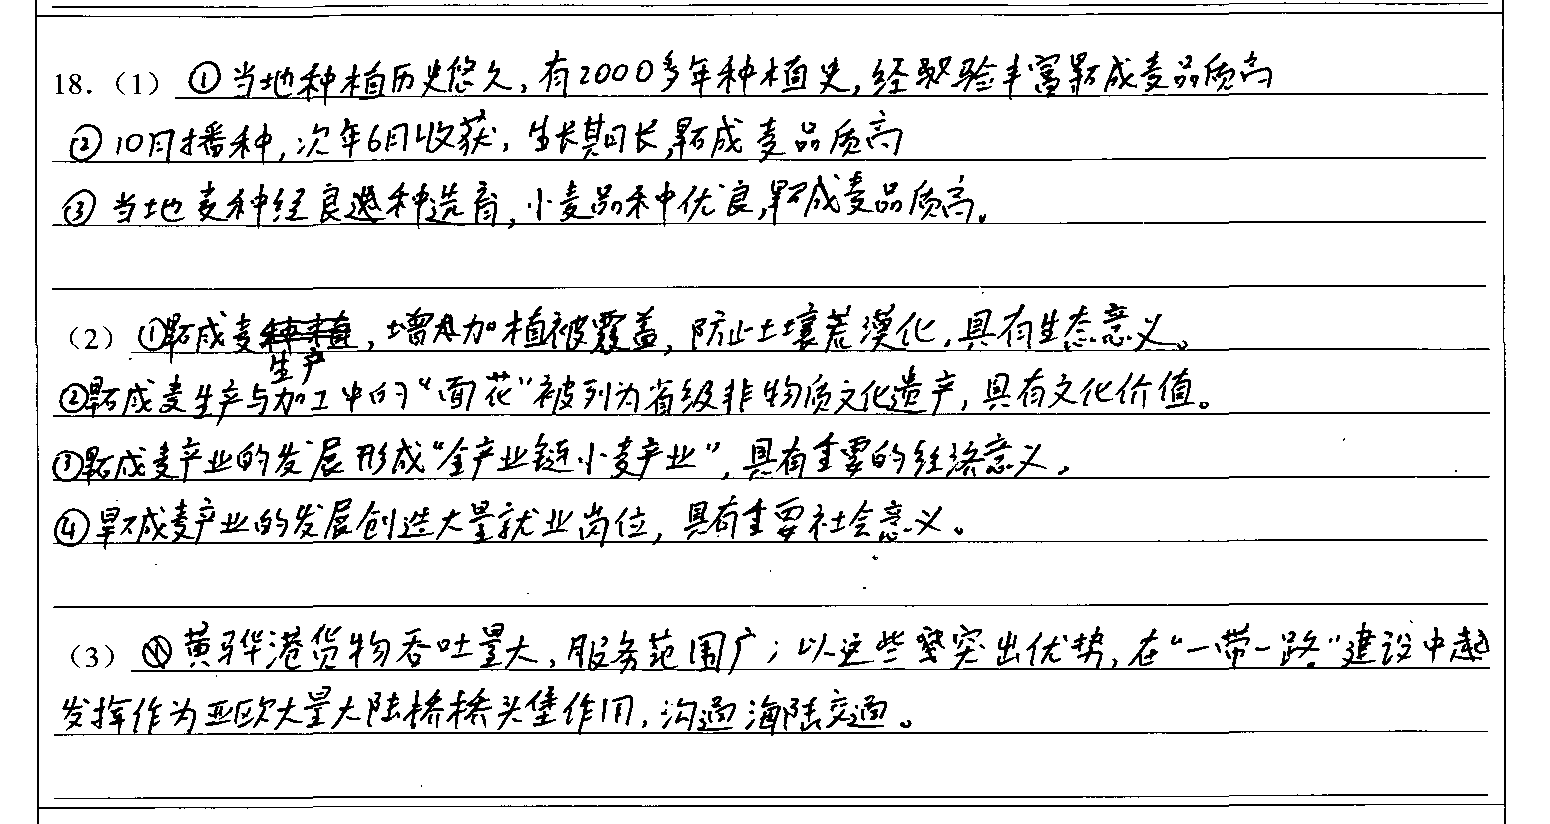 18.（1）①当地种植历史悠久,有2000多年种植史,经验丰富旱碱麦品质高
②10月播种,次年6月收获,生长期长,旱碱麦品质高
③当地麦种经良种选育,小麦品种优良,旱碱麦品质高。
（2）①旱碱麦生产,增加植被覆盖,防止土壤荒漠化,具有生态意义。
②旱碱麦生产与加工中的“面花”被列为省级非物质文化遗产,具有文化价值。
③旱碱麦产业的发展形成“全产业链小麦产业”,具有重要的经济意义。
④旱碱麦产业的发展创造大量就业岗位,具有重要社会意义。
（3）黄骅港货物吞吐量大,服务范围广;以这些突出优势,在“一带一路”建设中
发挥作为亚欧大量大陆桥桥头堡作用,沟通海陆交通。